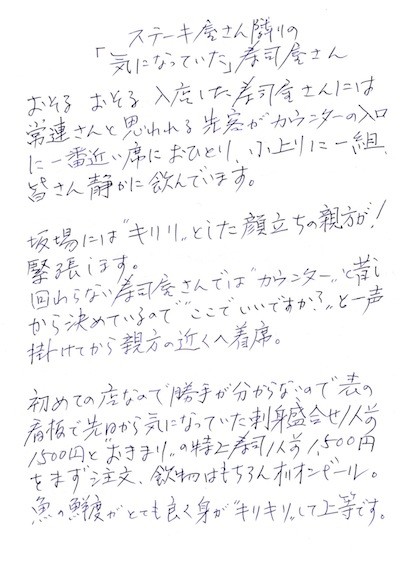 ステーキ屋さん隣りの
「気になっていた」寿司屋さん
おそる おそる 入店した寿司屋さんには
常連さんと思われる先客がカウンターの入口
に一番近い席におひとり、小上りに一組、
皆さん静かに飲んでいます。
坂場には“キリリ”とした顔立ちの親方が!
緊張します。
回わらない寿司屋さんでは“カウンター”と昔し
から決めているので“ここでいいですか?”と一声
掛けてから親方の近くへ着席。
初めての店なので勝手が分からないので表の
看板で先日から気になっていた刺身盛合せ1人前
1500円と“おきまり”の特上寿司1人前1,500円
をまず注文、飲物はもちろんオリオンビール。
魚の鮮度がとても良く身が“キリキリ”して上等です。